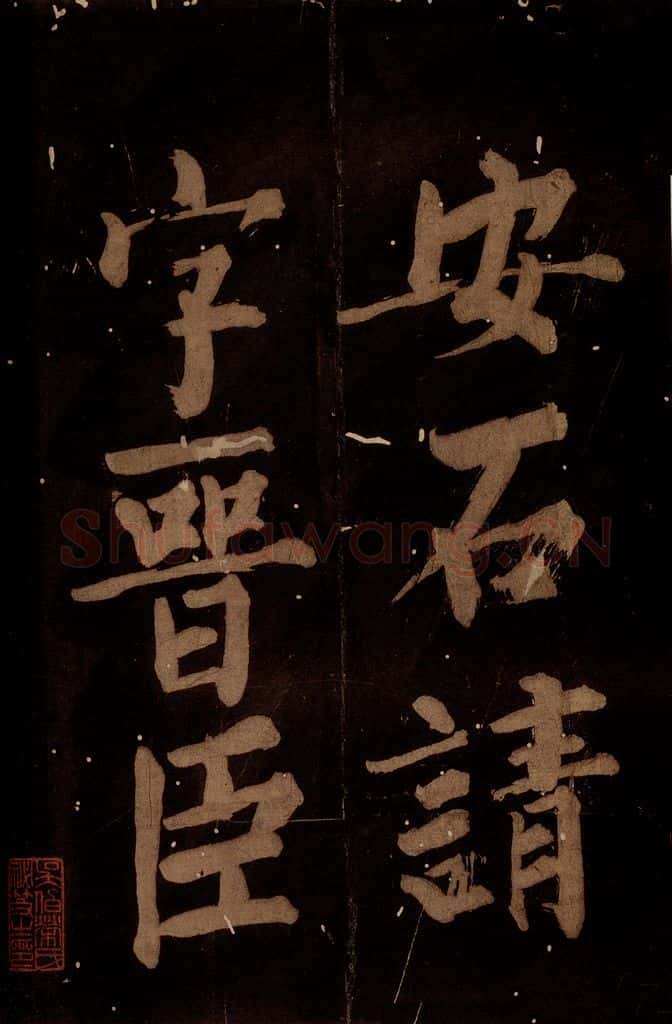 安石請
字晉臣
Shufawang.CN